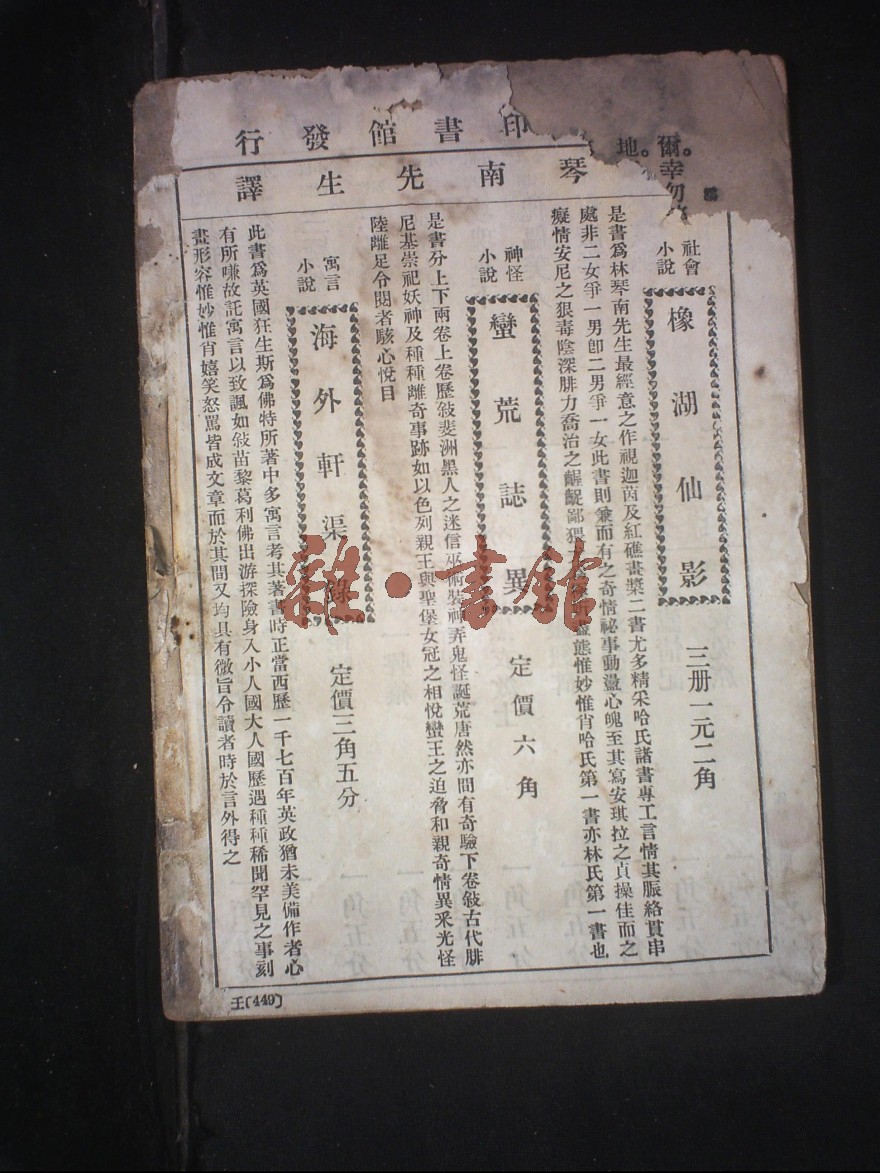 印書館發行
琴南先生譯
爾。
幸勿
地。
社會
小說
橡湖仙影
三册一元二角
是書爲林琴南先生最經意之作視迦茵及紅礁畫槳二書尤多精采哈氏諸書專工言情其脈絡貫串
處非二女爭一男卽二男爭一女此書則兼而有之奇情祕事動盪心魄至其寫安琪拉之貞操佳而之
癡情安尼之狠毒陰深腓力喬治之齷齪鄙猥盡態惟妙惟肖哈氏第一書亦林氏第一書也
神怪
小說
蠻荒誌異
定價六角
是書分上下兩卷上卷歷敍斐洲黑人之迷信巫術裝神弄鬼怪誕荒唐然亦間有奇驗下卷敍古代腓
尼基崇祀妖神及種種離奇事跡如以色列親王與聖堡女冠之相悅蠻王之迫脅和親奇情異釆光怪
陸離足令閱者駭心悅目
寓言
小說
海外軒渠錄
定價三角五分
此書爲英國狂生斯爲佛特所著中多寓言考其著書時正當西歷一千七百年英政猶未美備作者心
有所嗛故託寓言以致諷如敍苗黎葛利佛出游探險身入小人國大人國歷遇種種稀聞罕見之事刻
畫形容惟妙惟肖嬉笑怒罵皆成文章而於其間又均具有微旨令讀者時於言外得之
王(449)
雜·書館